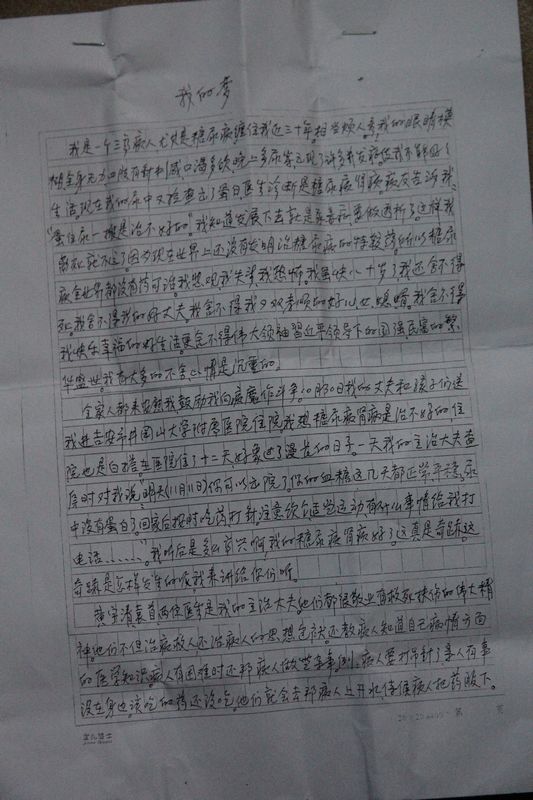 我的梦
我是一个三高病人尤其是糖尿病缠住我近三十年。相当烦人,我的眼睛模
糊全身无力四肢有针刺感口渴多饮晚上多尿等出现了许多并发症使我不能好好
生活。现在我的尿中又检查出了蛋白。医生诊断是糖尿病肾病。病友告诉我
"蛋白尿一般是治不好的。"我知道发展下去就是要透析了。这样我
离死就不远了。因为现在世界上还没有发明治糖尿病的特效药。所以糖尿
病全世界都没有药可治。我悲观我失望我恐惧。我虽快八十岁了我还舍不得
死。我舍不得我的好丈夫。我舍不得我双双孝顺的好儿女媳婿。我舍不得
我快乐幸福的好生活。更舍不得伟大领袖习近平领导下的国强民富的繁
华盛世。我有太多的不舍心情是沉重的。
全家人都来安慰我鼓励我向病魔作斗争。10月30日我的丈夫和孩子们送
我进吉安市井冈山大学附属医院住院。我想糖尿病肾病是治不好的住
院也是白搭在医院住了十二天好象过了漫长的日子。一天我的主治大夫查
房时对我说"明天(11月11日)你可以出院了。你的血糖这几天都正常平稳。尿
中没有蛋白了。回家后按时吃药打针。注意饮食适当运动有什么事情给我打
电话……"。我听后是多么高兴啊我的糖尿病肾病好了。这真是奇迹。这
奇迹是怎样发生的呢。我来讲给你们听。
黄宇清袁首两位医生是我的主治大夫他们都很敬业有救死扶伤的伟大精
神。他们不但治病救人还治病人的思想包袱。还教病人知道自己病情方面
的医学知识病人有困难时还帮病人做些杂事。例。病人要打吊针了家人有事
没在身边。该吃的药还没吃。他们就会去帮病人上开水侍候病人把药服下。
20×20=400 第 页